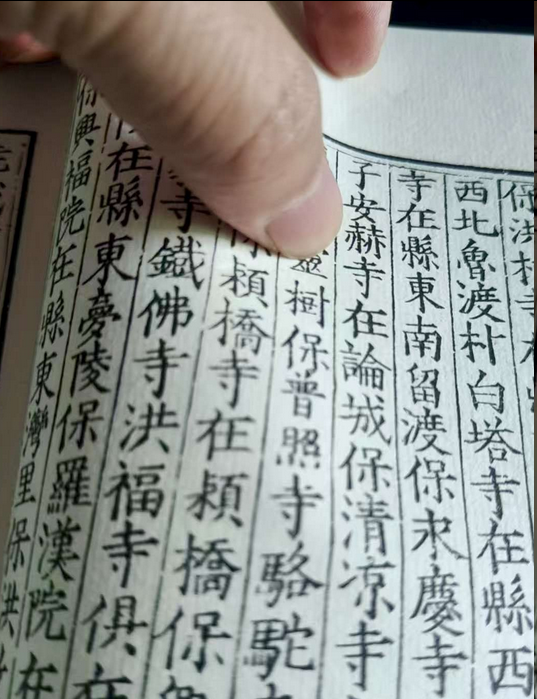 保洪村寺在
西北魯渡村白塔寺在縣西
寺在縣東南留渡保永慶寺
子安赫寺在論城保清凉寺
靈樹保普照寺駱駝
保潁橋寺在潁橋保
寺鐵佛寺洪福寺俱在
在縣東臺陵保羅漢院在
保興福院在縣東灣里保洪